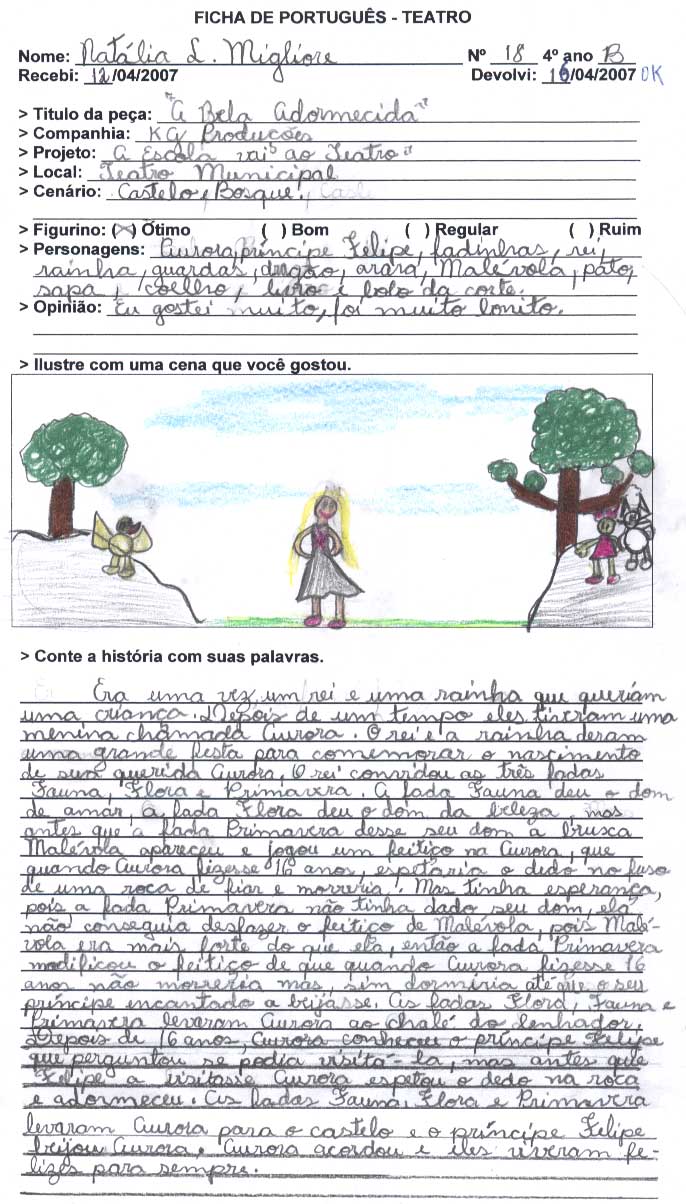 FICHA DE PORTUGUÊS - TEATRO
Nome: Natália L. Migliore Nº 18 4º ano B
Recebi: 12/04/2007 Devolvi: 16/04/2007 OK
> Titulo da peça: "A Bela Adormecida"
> Companhia: KG Produções
> Projeto: A Escola vai ao Teatro"
> Local: Teatro Municipal
> Cenário: Castelo, Bosque.
> Figurino: (X) Ótimo ( ) Bom ( ) Regular ( ) Ruim
> Personagens: Aurora, príncipe Felipe, fadinhas, rei,
rainha, guardas, dragão, arara, Malévola, pato,
sapa, coelho, livro e bobo da corte.
> Opinião: Eu gostei muito, foi muito bonito.
> Ilustre com uma cena que você gostou.
> Conte a história com suas palavras.
Era uma vez um rei e uma rainha que queriam
uma criança. Depois de um tempo eles tiveram uma
menina chamada Aurora. O rei e a rainha deram
uma grande festa para comemorar o nascimento
de sua querida Aurora. O rei convidou as três fadas
Fauna, Flora e Primavera. A fada Fauna deu o dom
de amar, a fada Flora deu o dom da beleza, mas
antes que a fada Primavera desse seu dom a brusca
Malévola apareceu e jogou um feitiço na Aurora, que
quando Aurora fizesse 16 anos, espetaria o dedo no fuso
de uma roca de fiar e morreria. Mas tinha esperança,
pois a fada Primavera não tinha dado seu dom, ela
não conseguia desfazer o feitiço de Malévola, pois Malé-
vola era mais forte do que ela, então a fada Primavera
modificou o feitiço de que quando Aurora fizesse 16
anos não morreria mas, sim dormiria até que o seu
príncipe encantado a beijasse. As fadas Flora, Fauna e
Primavera levaram Aurora ao chalé do lenhador.
Depois de 16 anos, Aurora conheceu o príncipe Felipe
que perguntou se podia visitá-la, mas antes que
Felipe a visitasse Aurora espetou o dedo na roca
e adormeceu. As fadas Fauna, Flora e Primavera
levaram Aurora para o castelo e o príncipe Felipe
beijou Aurora. Aurora acordou e eles viveram fe-
lizes para sempre.